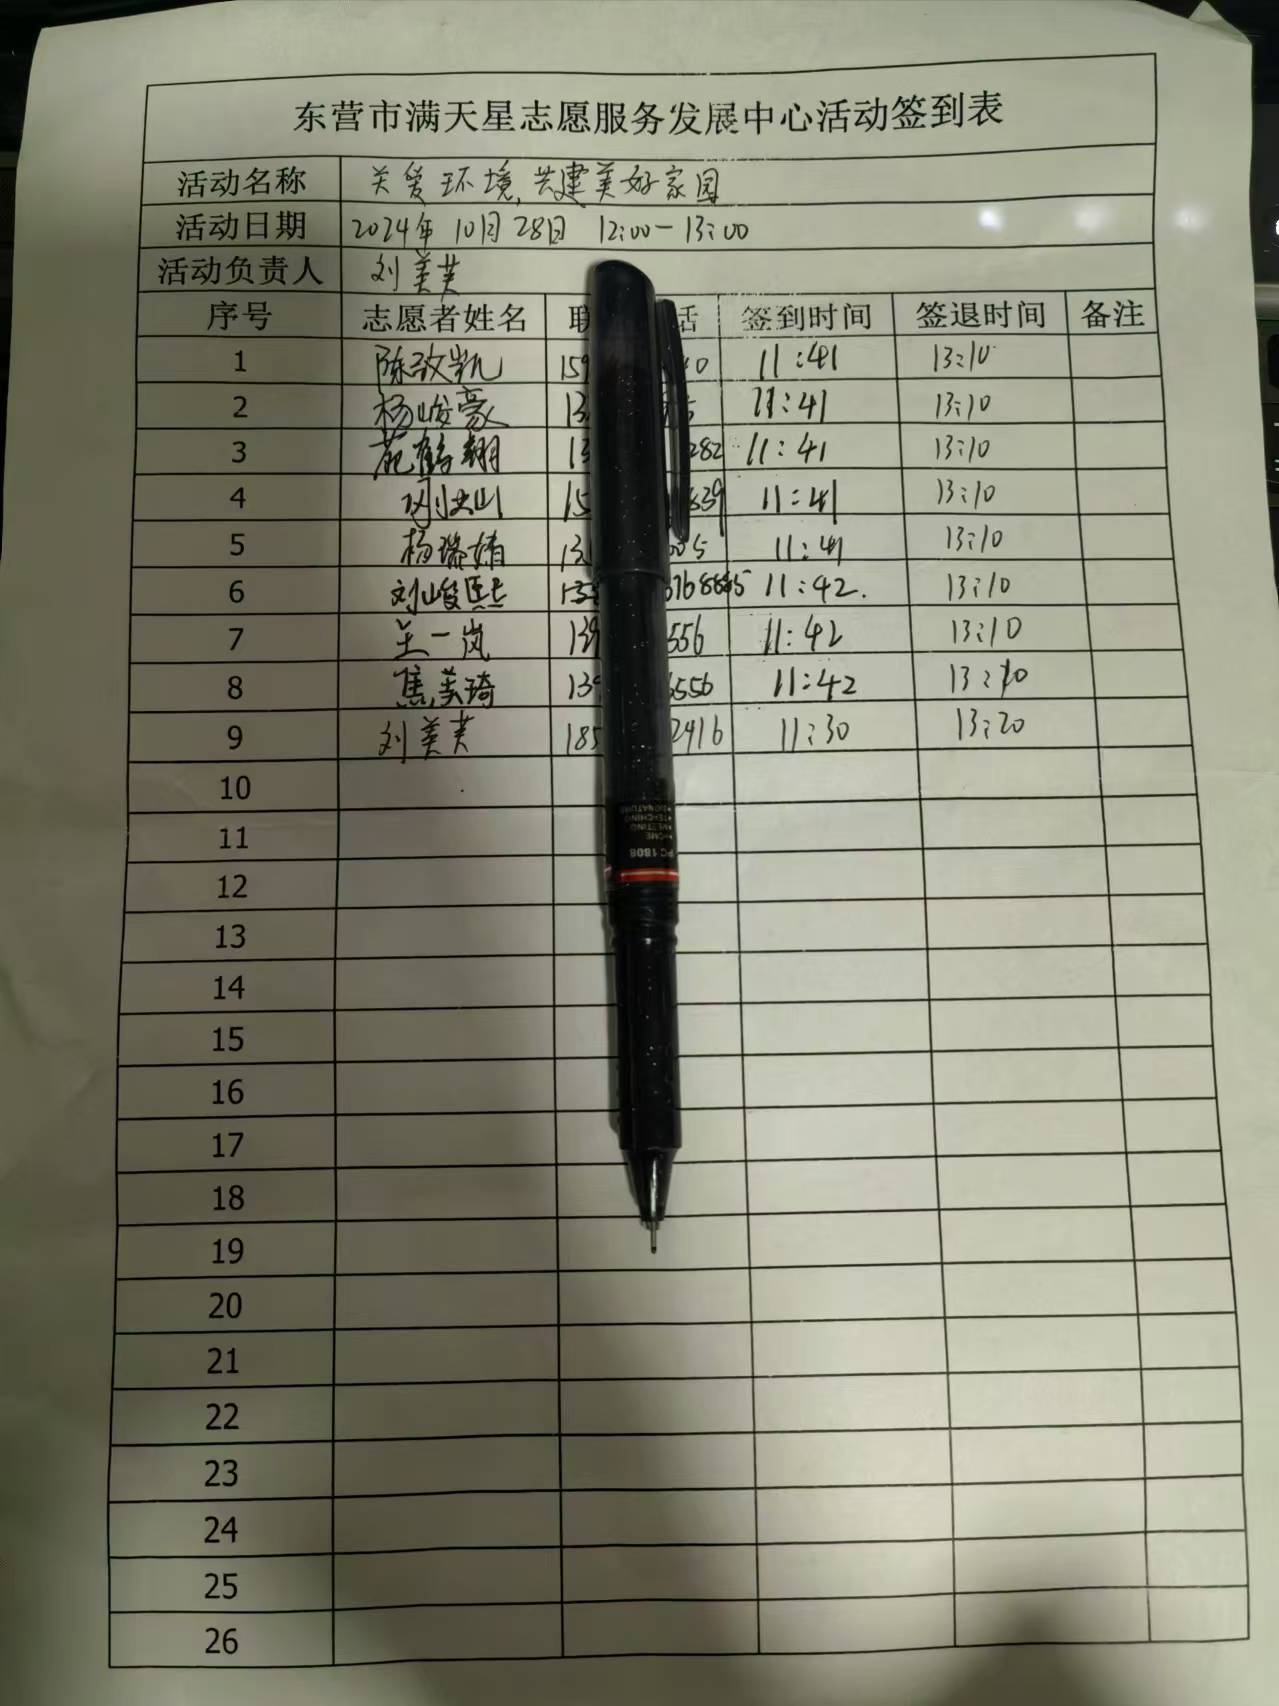 东营市满天星志愿服务发展中心活动签到表
活动名称 关爱环境,共建美好家园
活动日期 2024年10月28日 12:00-13:00
活动负责人 刘美芙
序号 志愿者姓名 联 话 签到时间 签退时间 备注
1 陈政凯 159 0 11:41 13:10
2 杨峻豪 13 5 11:41 13:10
3 范鹤翔 13 282 11:41 13:10
4 15 639 11:41 13:10
5 杨璐婧 13 5 11:41 13:10
6 刘峻熙 133 11:42. 13:10
7 王一岚 139 556 11:42 13:10
8 焦美琦 139 6556 11:42 13:10
9 刘美芙 185 2416 11:30 13:20
10
11
12
13
14
15
16
17
18
19
20
21
22
23
24
25
26
PC 1808
•HOME
•MEETING
•TEACHING
•SIGNATURE